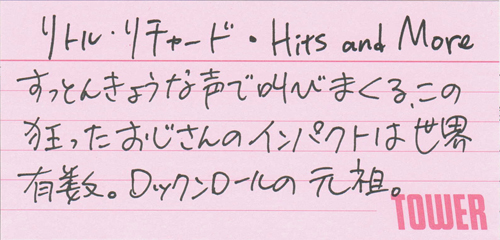 リトル・リチャード・Hits and More
すっとんきょうな声で叫びまくる、この
狂ったおじさんのインパクトは世界
有数。ロックンロールの元祖。
TOWER